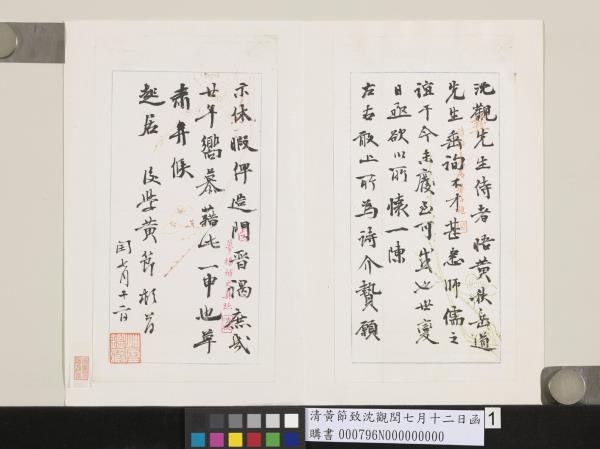 沈觀先生侍者晤黃秋岳道
先生垂詢不才甚悉師儒之
誼于今未廢至可感也世變
日亟欲以所懷一陳
左右敢上所為詩介贄願
示休暇俾造門晉謁庶幾
廿年嚮慕藉此一申也草
肅弁候
起居 後學黃節頓首
閏七月十二日
清黃節致沈觀閏七月十二日函
購書 000796N000000000
1